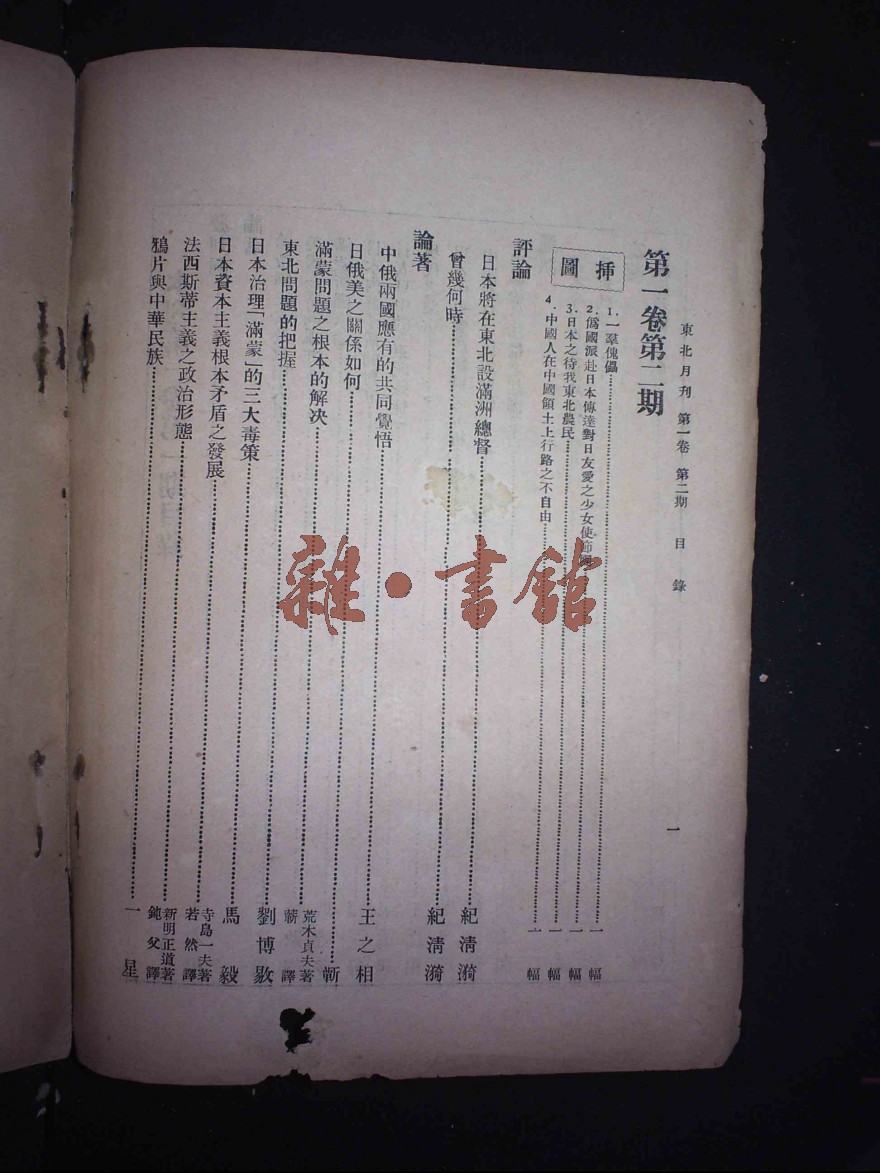 東北月刊 第一卷 第二期 目錄 一
第一卷第二期
挿圖
1.一羣傀儡……一幅
2.僞國派赴日本傳達對日友愛之少女使節團……一幅
3.日本之待我東北農民……一幅
4.中國人在中國領土上行路之不自由……一幅
評論
日本將在東北設滿洲總督……紀清漪
曾幾何時……紀清漪
論著
中俄兩國應有的共同覺悟……王之相
日俄美之關係如何……
滿蒙問題之根本的解决……荒木貞夫著 譯
東北問題的把握……劉博敭
日本治理「滿蒙」的三大毒策……馬毅
日本資本主義根本矛盾之發展……寺島一夫著 若然譯
法西斯蒂主義之政治形態……新明正道著 鈍父譯
鴉片與中華民族……一星
雜·書館